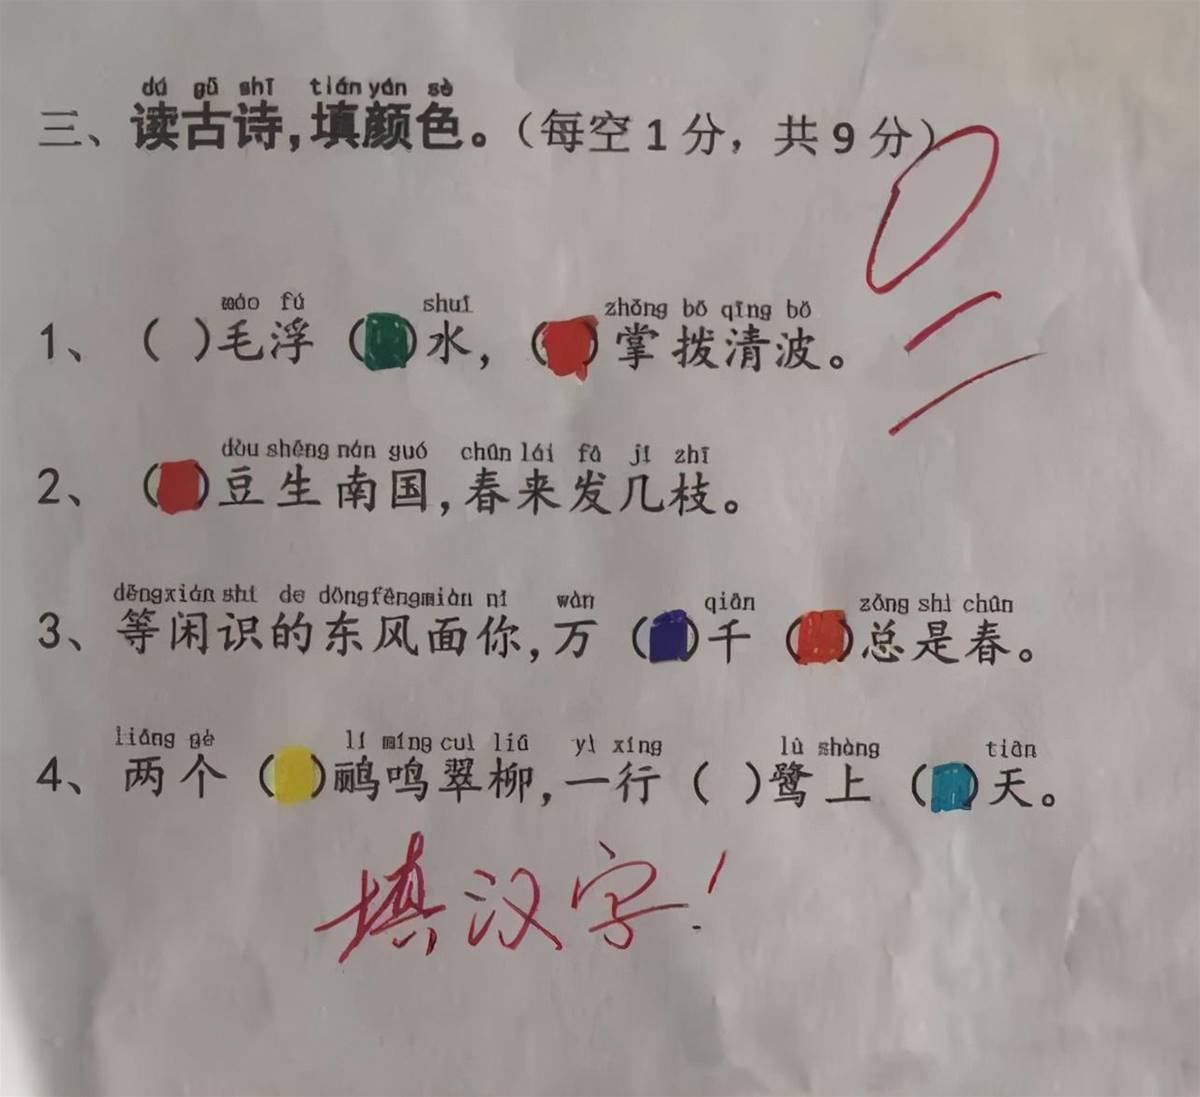 dú gǔ shī tián yán sè
三、读古诗,填颜色。(每空1分，共9分)
0
máo fú shuǐ zhǎng bō qīng bō
1、 ( )毛浮 ( )水，( )掌拨清波。
dòu shēng nán guó chūn lái fā jǐ zhī
2、 ( )豆生南国,春来发几枝。
děng xián shí de dōng fēng miàn nǐ wàn qiān zǒng shì chūn
3、等闲识的东风面你,万 ( )千 ( )总是春。
liǎng gè lí míng cuì liǔ yì xíng lù shàng tiān
4、两个 ( )鹂鸣翠柳,一行 ( )鹭上 ( )天。
填汉字!